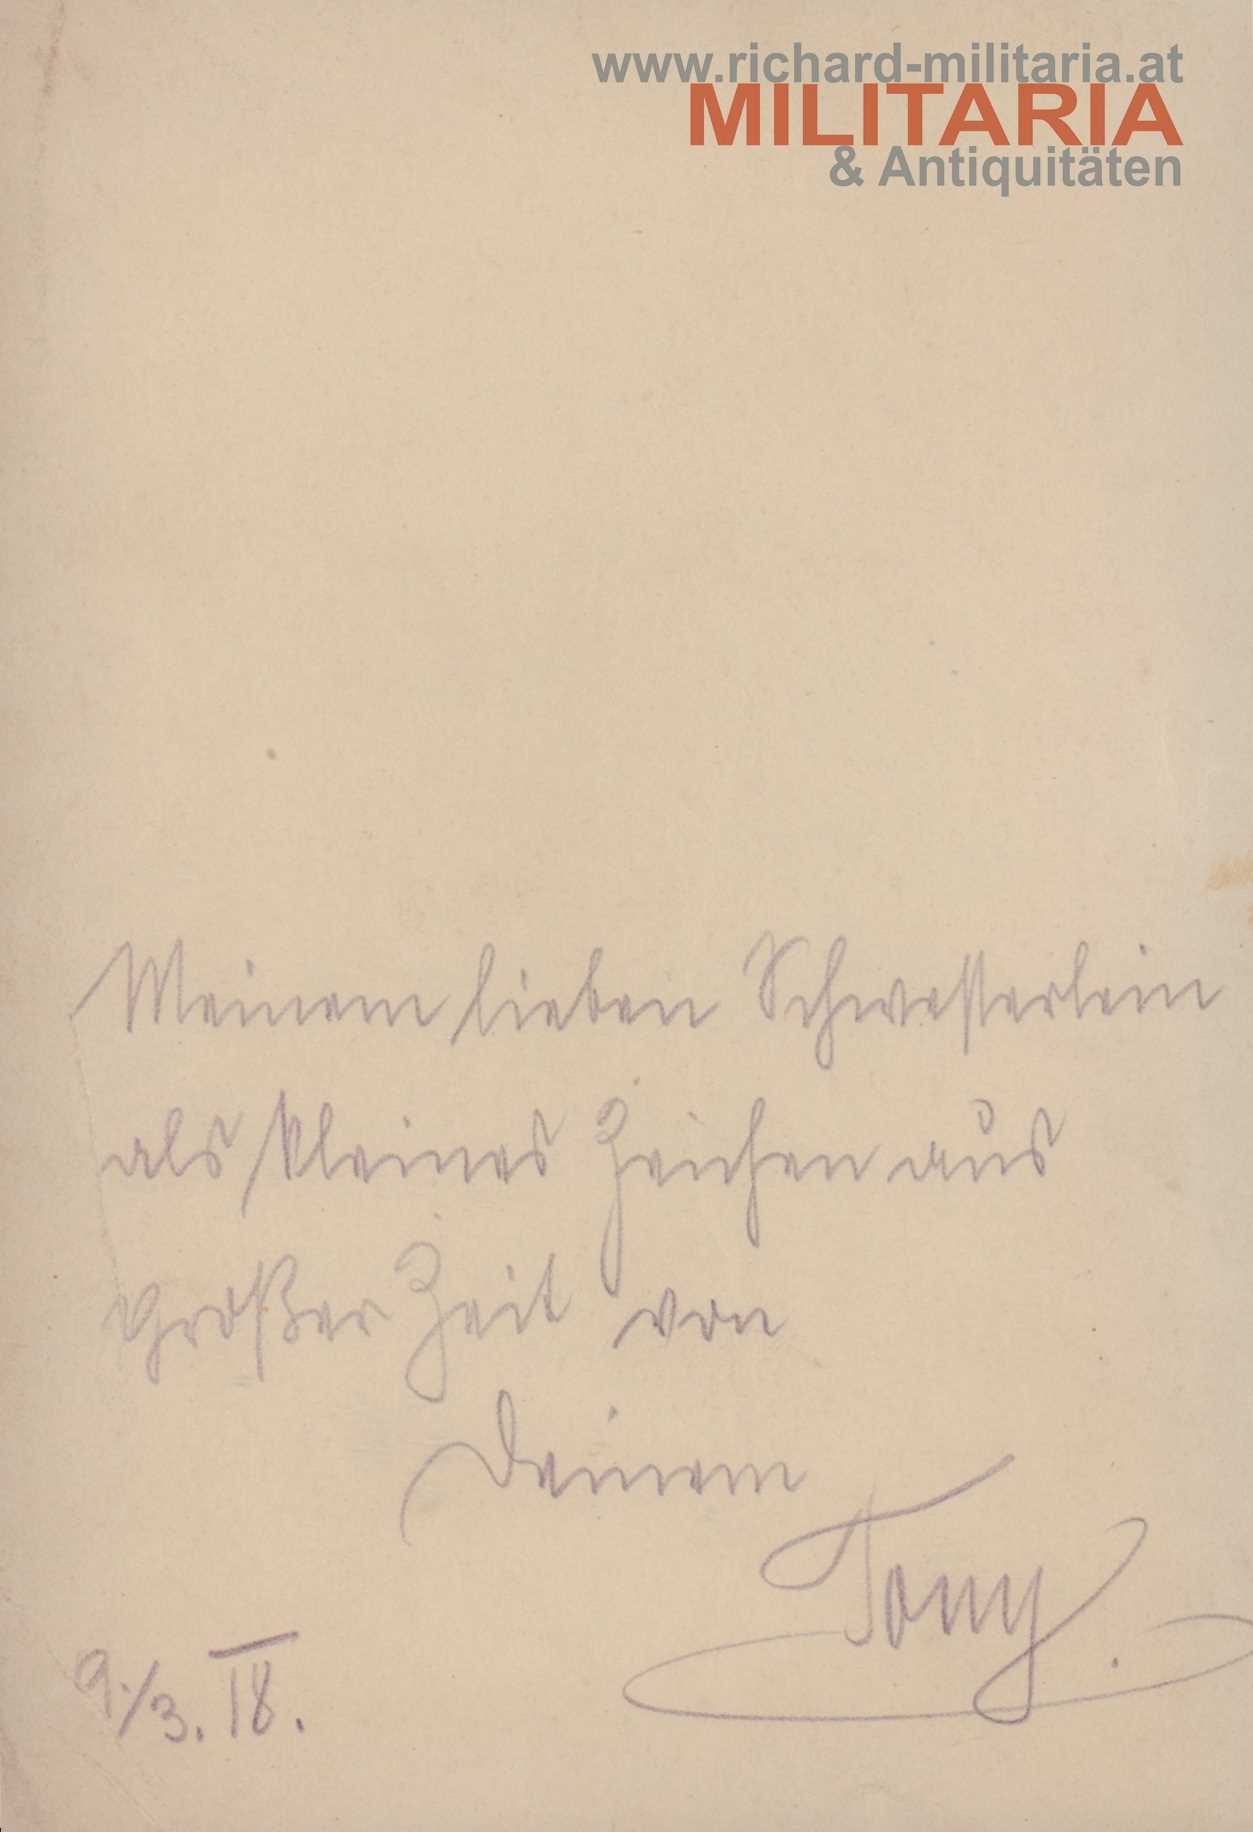 www.richard-militaria.at
MILITARIA
& Antiquitäten
Meinem lieben Schwesterlein
als kleines Zeichen aus
großer Zeit von
Deinem
Tony.
9./3. 18.